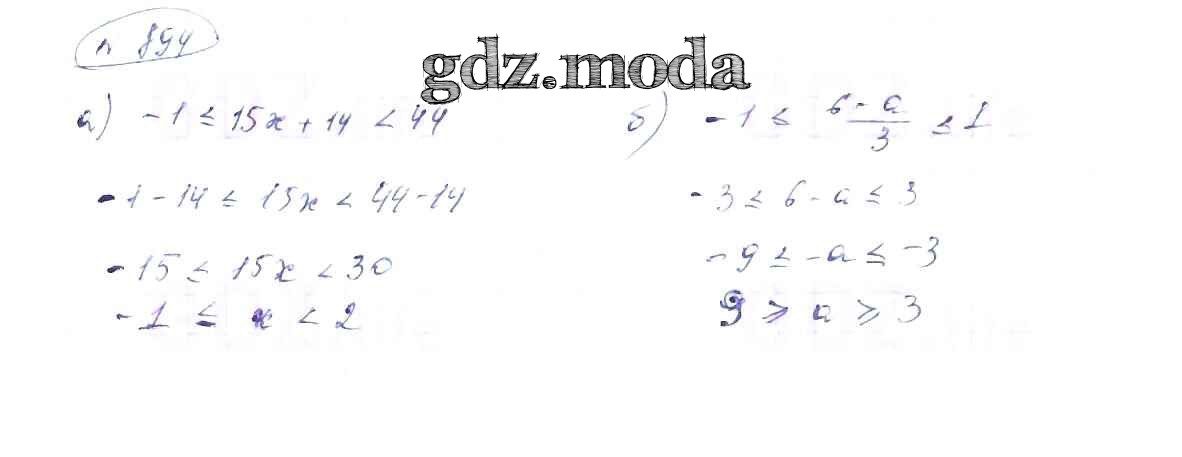 n 894
gdz.moda
а) -1 ≤ 15x + 14 < 44
-1 - 14 ≤ 15x < 44 - 14
-15 ≤ 15x < 30
-1 ≤ x < 2
б) -1 ≤ (6 - a)/3 ≤ 1
-3 ≤ 6 - a ≤ 3
-9 ≤ -a ≤ -3
9 ⩾ a ⩾ 3